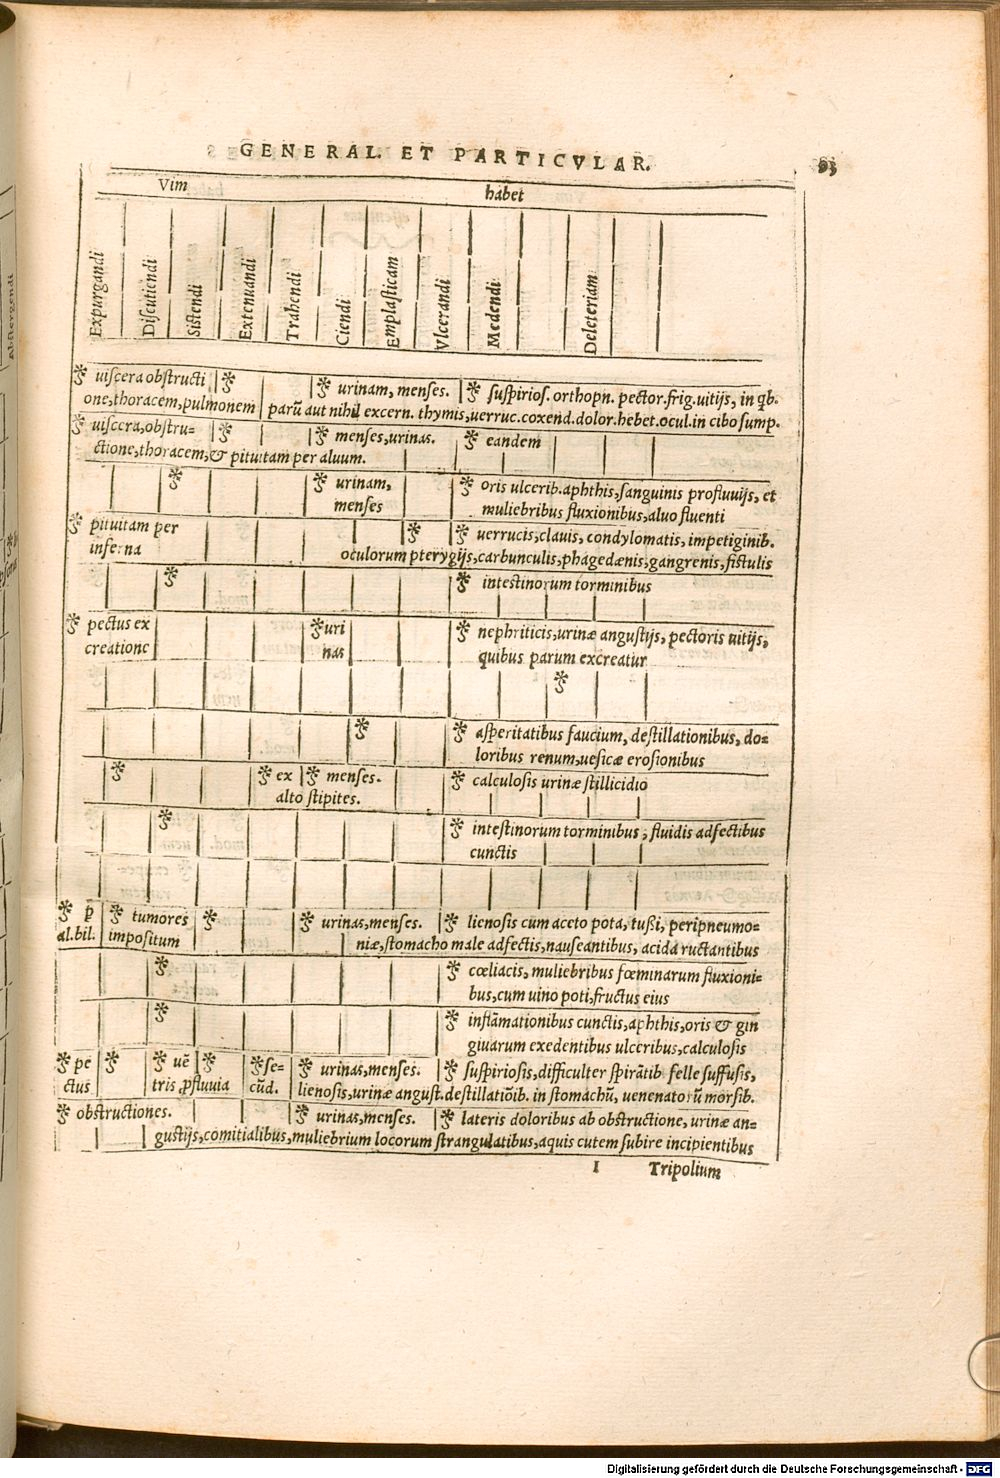 GENERAL. ET PARTICVLAR. 93
Vim habet
Expurgandi
Discutiendi
Sistendi
Extenuandi
Trahendi
Ciendi
Emplasticam
Vlcerandi
Medendi
Deleteriam
Abstergendi
uiscera obstructi urinam, menses. suspirios. orthopn. pector.frig.uitijs, in qb.
one,thoracem,pulmonem parū aut nihil excern. thymis,uerruc.coxend.dolor.hebet.ocul.in cibo sump.
uiscera,obstru= menses,urinas. eandem
ctione,thoracem,& pituitam per aluum.
urinam, oris ulcerib.aphthis,sanguinis profluuijs, et
menses muliebribus fluxionibus,aluo fluenti
pituitam per uerrucis,clauis, condylomatis, impetiginib.
inferna oculorum pterygijs,carbunculis,phagedænis,gangrenis,fistulis
intestinorum torminibus
pectus ex uri nephriticis,urinæ angustijs, pectoris uitijs,
creatione nas quibus parum excreatur
asperitatibus faucium, destillationibus, do=
loribus renum,uesicæ erosionibus
ex menses. calculosis urinæ stillicidio
alto stipites.
intestinorum torminibus, fluidis adfectibus
cunctis
p̄ tumores urinas,menses. lienosis cum aceto pota, tußi, peripneumo=
al.bil. impositum niæ,stomacho male adfectis,nauseantibus, acida ructantibus
cœliacis, muliebribus fœminarum fluxioni=
bus,cum uino poti,fructus eius
inflāmationibus cunctis,aphthis,oris & gin
giuarum exedentibus ulceribus,calculosis
pe uē se= urinas,menses. suspiriosis,difficulter spirātib felle suffusis,
ctus tris profluuia cūd. lienosis,urinæ angust.destillatiōib. in stomachū, uenenatorū morsib.
obstructiones. urinas,menses. lateris doloribus ab obstructione, urinæ an=
gustijs,comitialibus,muliebrium locorum strangulatibus,aquis cutem subire incipientibus
I Tripolium
Digitalisierung gefördert durch die Deutsche Forschungsgemeinschaft - DFG